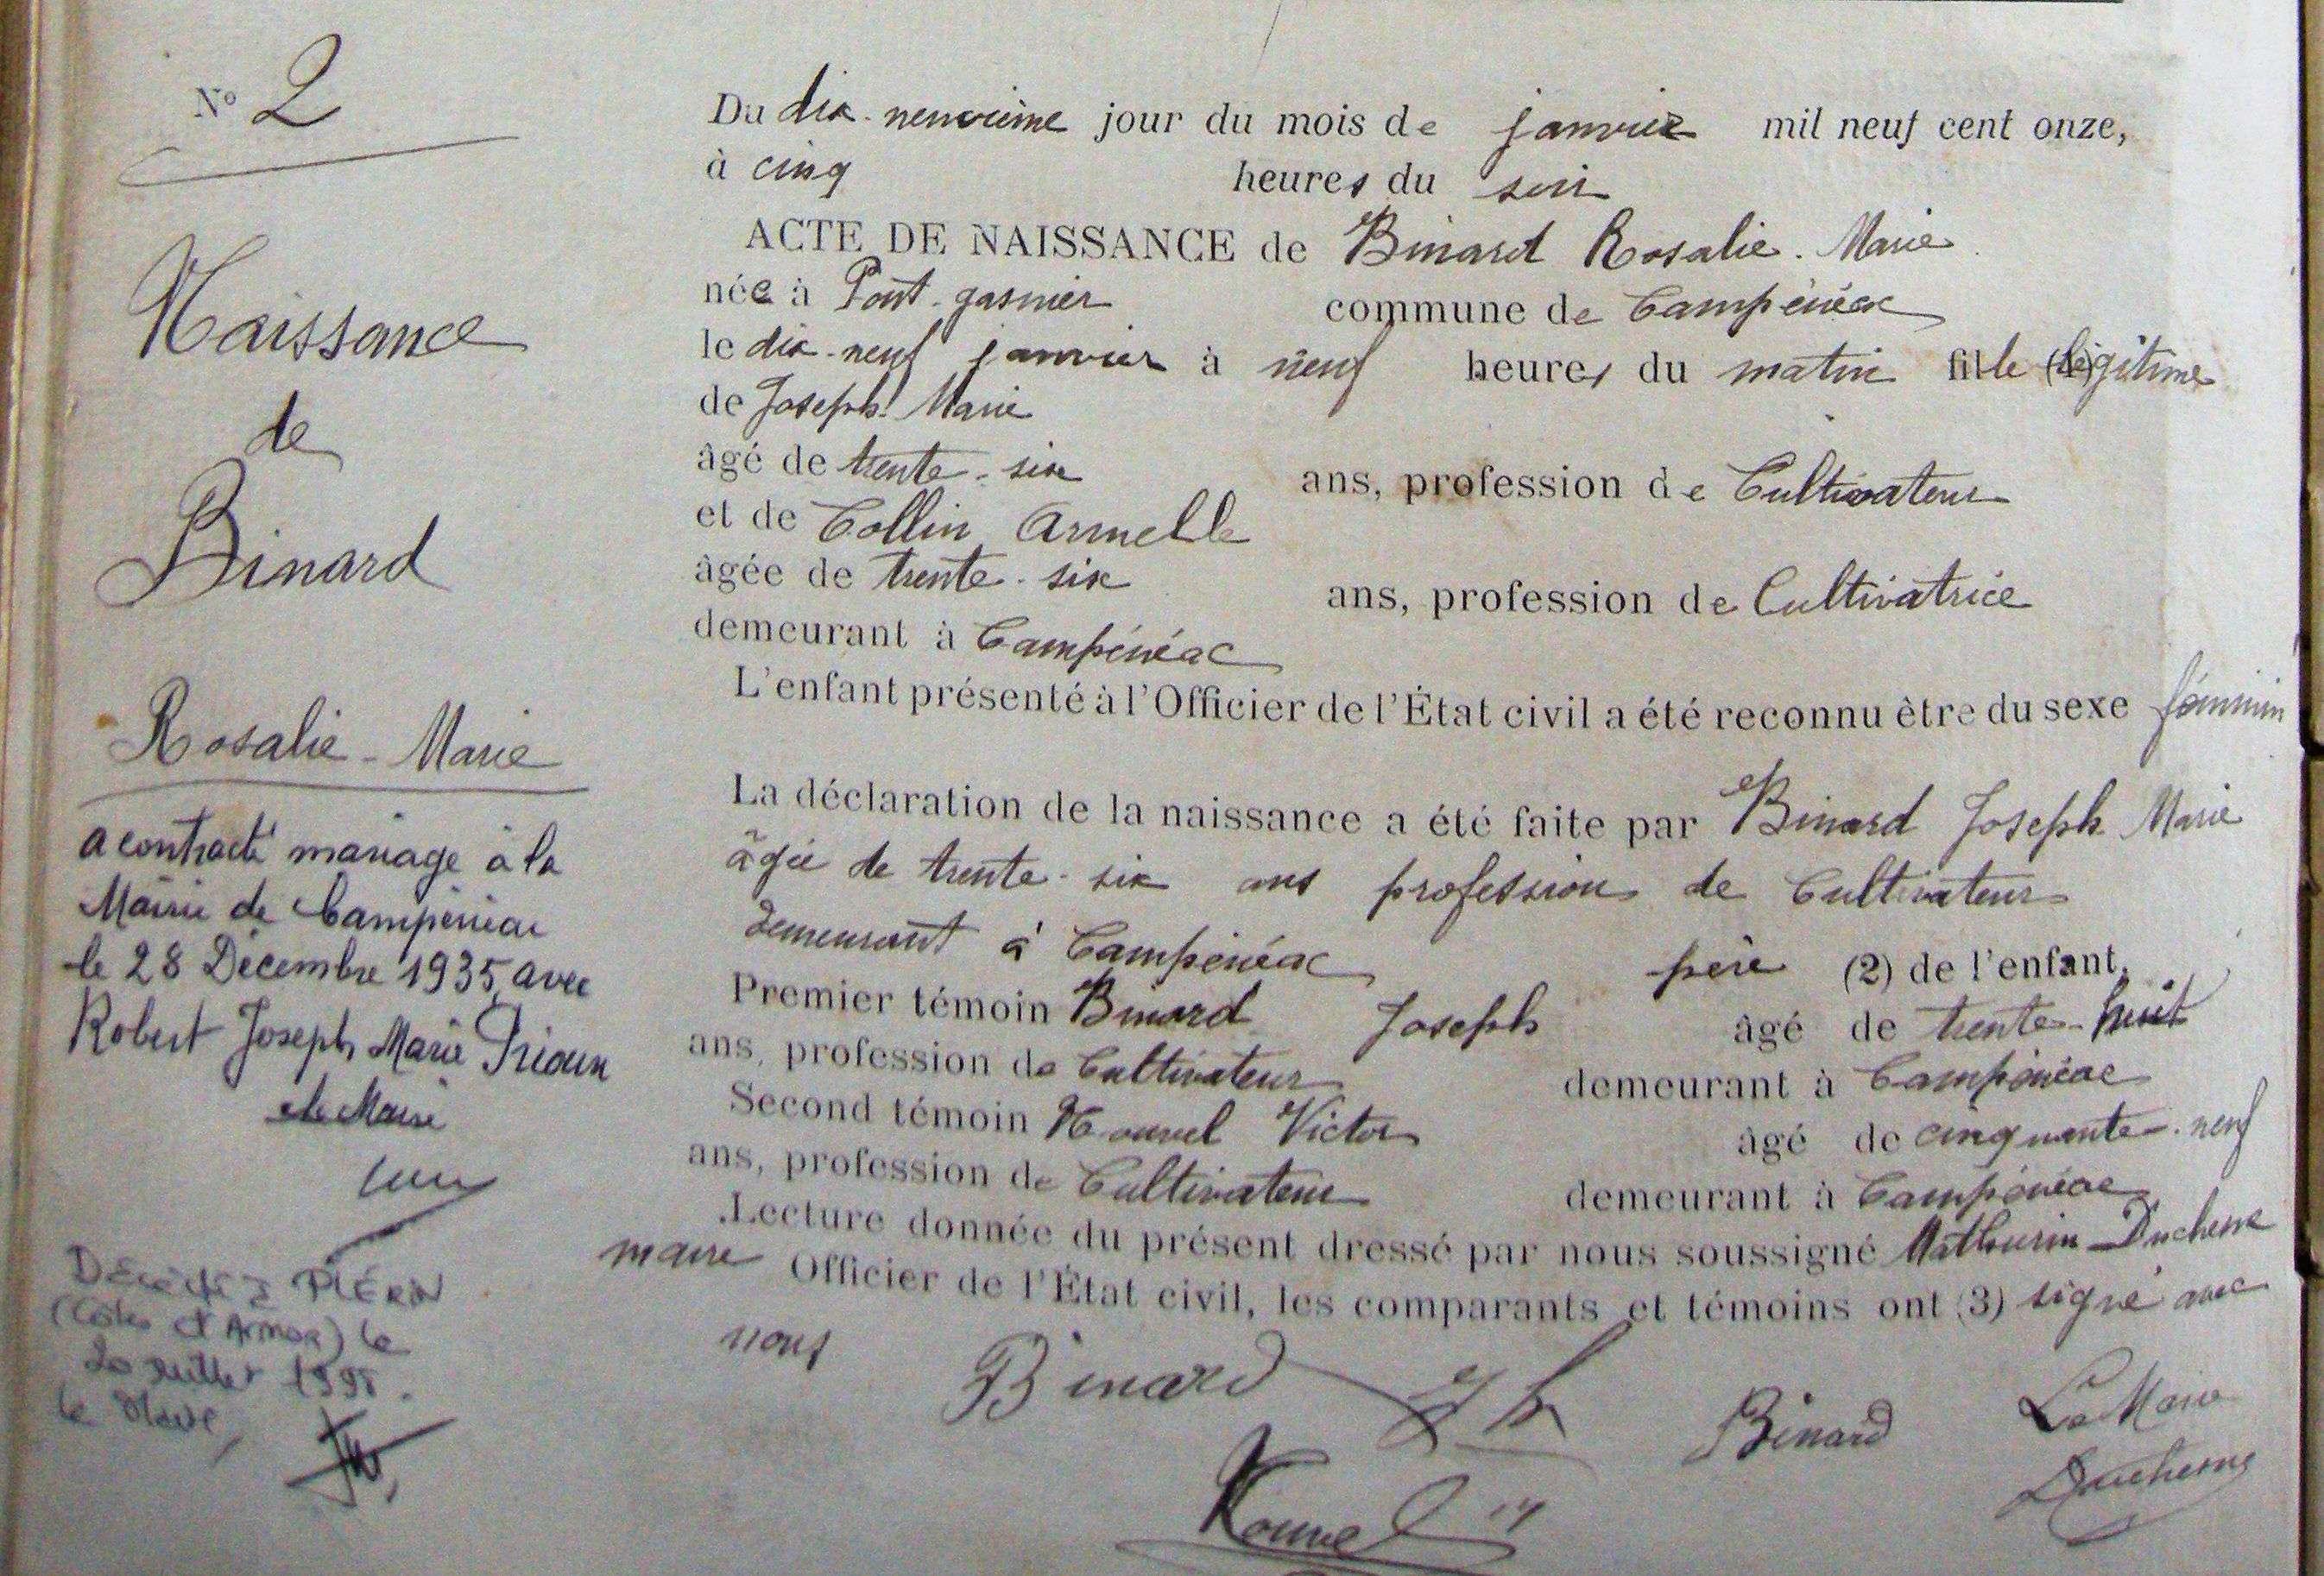 N° 2
Naissance
de
Binard
Rosalie - Marie
a contracté mariage à la
Mairie de Campénéac
le 28 Décembre 1935 avec
Robert Joseph Marie Prioux
Le Maire
Décédée à PLÉRIN
(Côtes d'Armor) le
20 Juillet 1998.
le Maire,
Du dix-neuvième jour du mois de janvier mil neuf cent onze,
à cinq heures du soir
ACTE DE NAISSANCE de Binard Rosalie. Marie
née à Pont-gasnier commune de Campénéac
le dix-neuf janvier à neuf heures du matin fille (1) légitime
de Joseph Marie
âgé de trente-six ans, profession de Cultivateur
et de Collin Armelle
âgée de trente-six ans, profession de Cultivatrice
demeurant à Campénéac
L'enfant présenté à l'Officier de l'État civil a été reconnu être du sexe féminin
La déclaration de la naissance a été faite par Binard Joseph Marie
âgée de trente-six ans profession de Cultivateur
demeurant à Campénéac père (2) de l'enfant,
Premier témoin Binard Joseph âgé de trente-huit
ans, profession de Cultivateur demeurant à Campénéac
Second témoin Nouvel Victor âgé de cinquante-neuf
ans, profession de Cultivateur demeurant à Campénéac
Lecture donnée du présent dressé par nous soussigné Mathurin Duchesne
maire Officier de l'État civil, les comparants et témoins ont (3) signé avec
nous
Binard Jh Binard Le Maire
Nouvel Duchesne